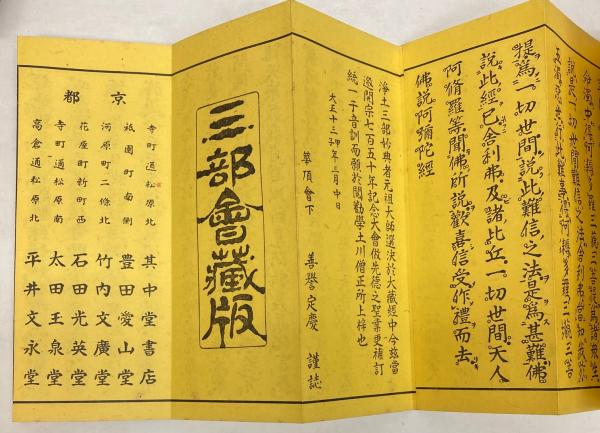 提爲一切世間說此難信之法是爲甚難佛
說此經已舍利弗及諸比丘一切世間天人
阿脩羅等聞佛所說歡喜信受作禮而去
佛說阿彌陀經
淨土三部妙典者元祖大師選決於大藏經中今玆當
遡開宗七百五十年記念大會倣先德之聖業更補訂
統一于音訓而願於閲勸學土川僧正所上梓也
大正十三年三月中日
華頂會下
善譽定慶 謹誌
三部會藏版
京都
寺町通松原北 其中堂書店
祇園町南側 豊田愛山堂
河原町二條北 竹内文廣堂
花屋町新町西 石田光英堂
寺町通松原南 太田王泉堂
高倉通松原北 平井文永堂